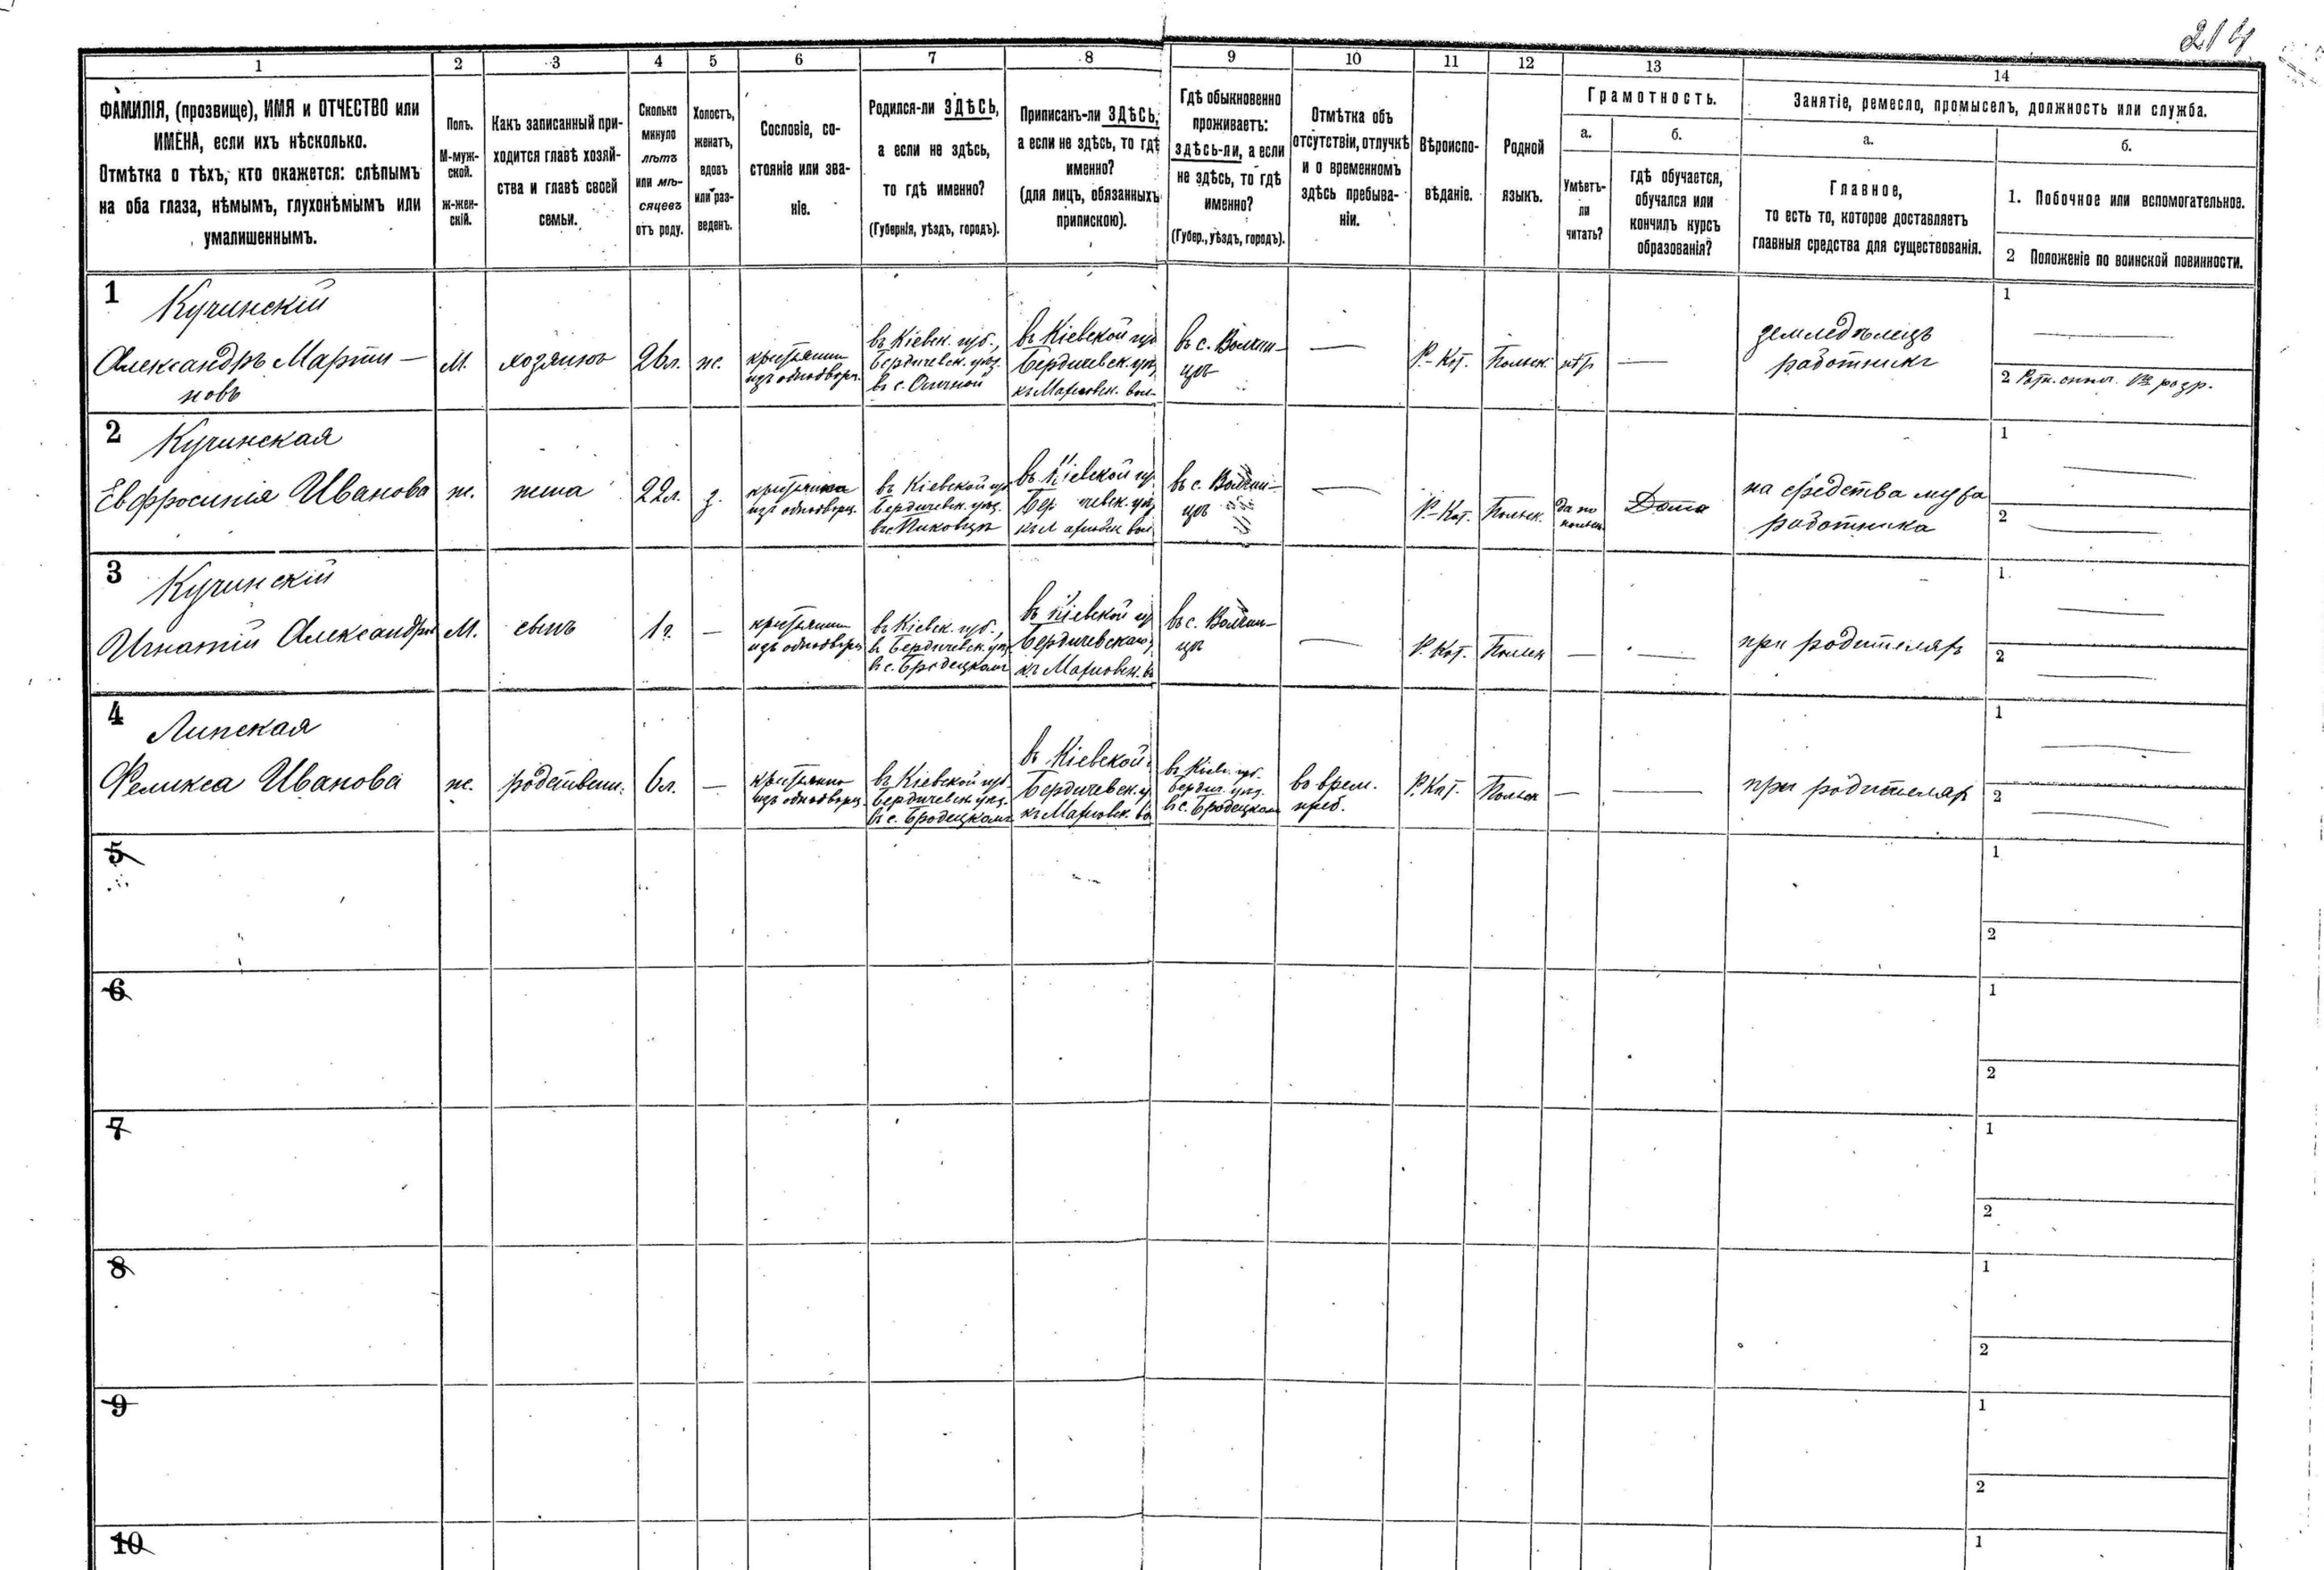 214
1 2 3 4 5 6 7 8 9 10 11 12 13 14
ФАМИЛІЯ, (прозвище), ИМЯ и ОТЧЕСТВО или
ИМЕНА, если ихъ нѣсколько.
Отмѣтка о тѣхъ, кто окажется: слѣпымъ
на оба глаза, нѣмымъ, глухонѣмымъ или
умалишеннымъ.
Полъ.
М-муж-
ской.
ж-жен-
скій.
Какъ записанный при-
ходится главѣ хозяй-
ства и главѣ своей
семьи.
Сколько
минуло
лѣтъ
или мѣ-
сяцевъ
отъ роду.
Холостъ,
женатъ,
вдовъ
или раз-
веденъ.
Сословіе, со-
стояніе или зва-
ніе.
Родился-ли ЗДѢСЬ,
а если не здѣсь,
то гдѣ именно?
(Губернія, уѣздъ, городъ).
Приписанъ-ли ЗДѢСЬ,
а если не здѣсь, то гдѣ
именно?
(для лицъ, обязанныхъ
припискою).
Гдѣ обыкновенно
проживаетъ:
здѣсь-ли, а если
не здѣсь, то гдѣ
именно?
(Губер., уѣздъ, городъ).
Отмѣтка объ
отсутствіи, отлучкѣ
и о временномъ
здѣсь пребыва-
ніи.
Вѣроиспо-
вѣданіе.
Родной
языкъ.
Грамотность.
а.
Умѣетъ-
ли
читать?
б.
гдѣ обучается,
обучался или
кончилъ курсъ
образованія?
Занятіе, ремесло, промыселъ, должность или служба.
а.
Главное,
то есть то, которое доставляетъ
главныя средства для существованія.
б.
1. Побочное или вспомогательное.
2 Положеніе по воинской повинности.
1
Кучинскій
Александръ Марти-
новъ
М.
хозяинъ
26л.
ж.
крестьянин
изъ однодворц.
въ Кіевск. губ.,
Бердичевск. уѣз.
въ с.
въ Кіевской гу
Бердичевск. уѣз
въ с.
—
Р-Кат.
Польск.
нѣт
—
земледѣлецъ
работникъ
1 —
2
2
Кучинская
Евфросинія Иванова
ж.
жена
22л.
з.
крестьянка
изъ однодворц.
въ Кіевской губ
Бердичевск. уѣз.
въ Кіевской гу.
въ с.
—
Р-Кат.
Польск.
да по
польск.
Дома
на средства мужа
работника
1 —
2 —
3
Кучинскій
Игнатій Александров
М.
сынъ
1г.
—
крестьянин
изъ однодворц
въ Кіевск. губ.,
в Бердичевск. уѣз
въ с. Бродецкомъ
въ Кіевской гу
Бердичевскаго у
въ с.
—
Р. Кат.
Польск
—
—
при родителяхъ
1 —
2 —
4
Липская
Феликса Иванова
ж.
родственн.
6л.
—
крестьянка
изъ однодворц.
въ Кіевской губ.
Бердичевск. уѣз.
въ с. Бродецкомъ
въ Кіевской
Бердичевск. у
въ Кіев. губ.
Бердич. уѣз.
въ с. Бродецкомъ
во врем.
преб.
Р. Кат.
Польск
—
—
при родителях
1 —
2 —
5
1
2
6
1
2
7
1
2
8
1
2
9
1
2
10
1